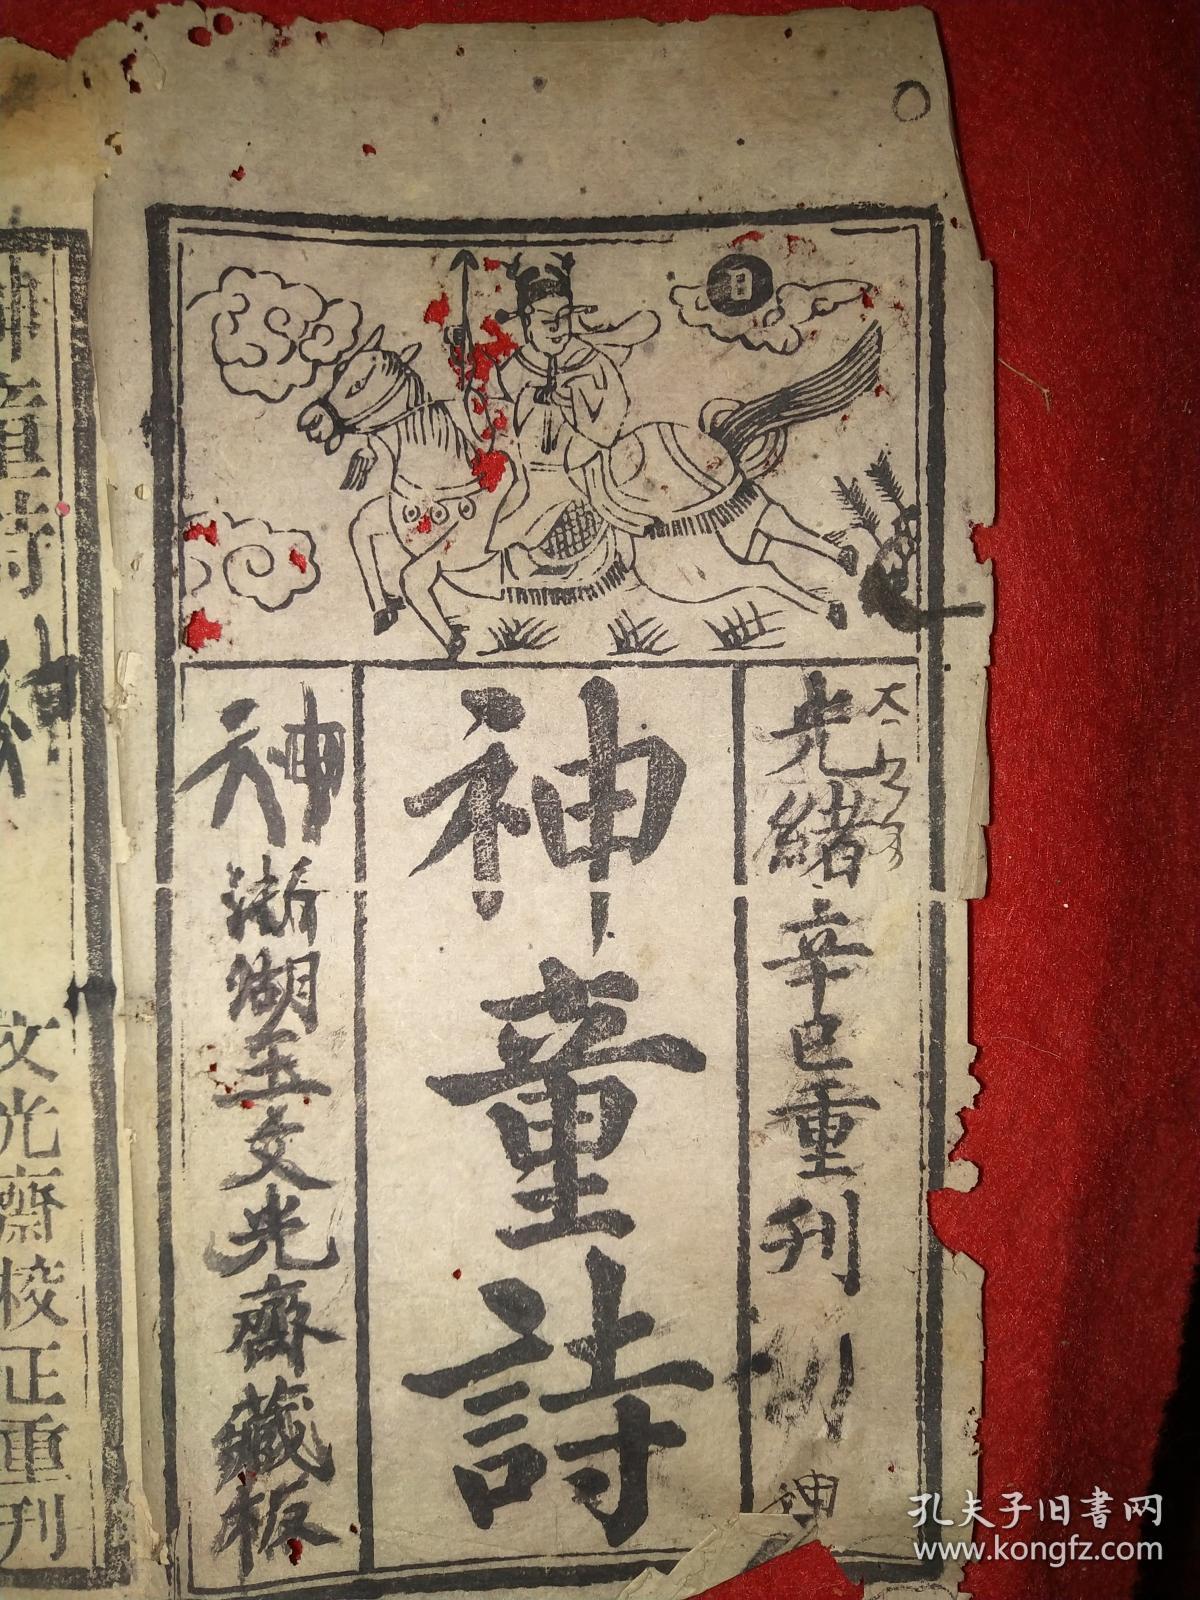 日
光緒辛巳重刊
神童詩
神
浙湖五文光齋藏板
神
神童詩
文光齋校正重刊
孔夫子旧書网
www.kongfz.com